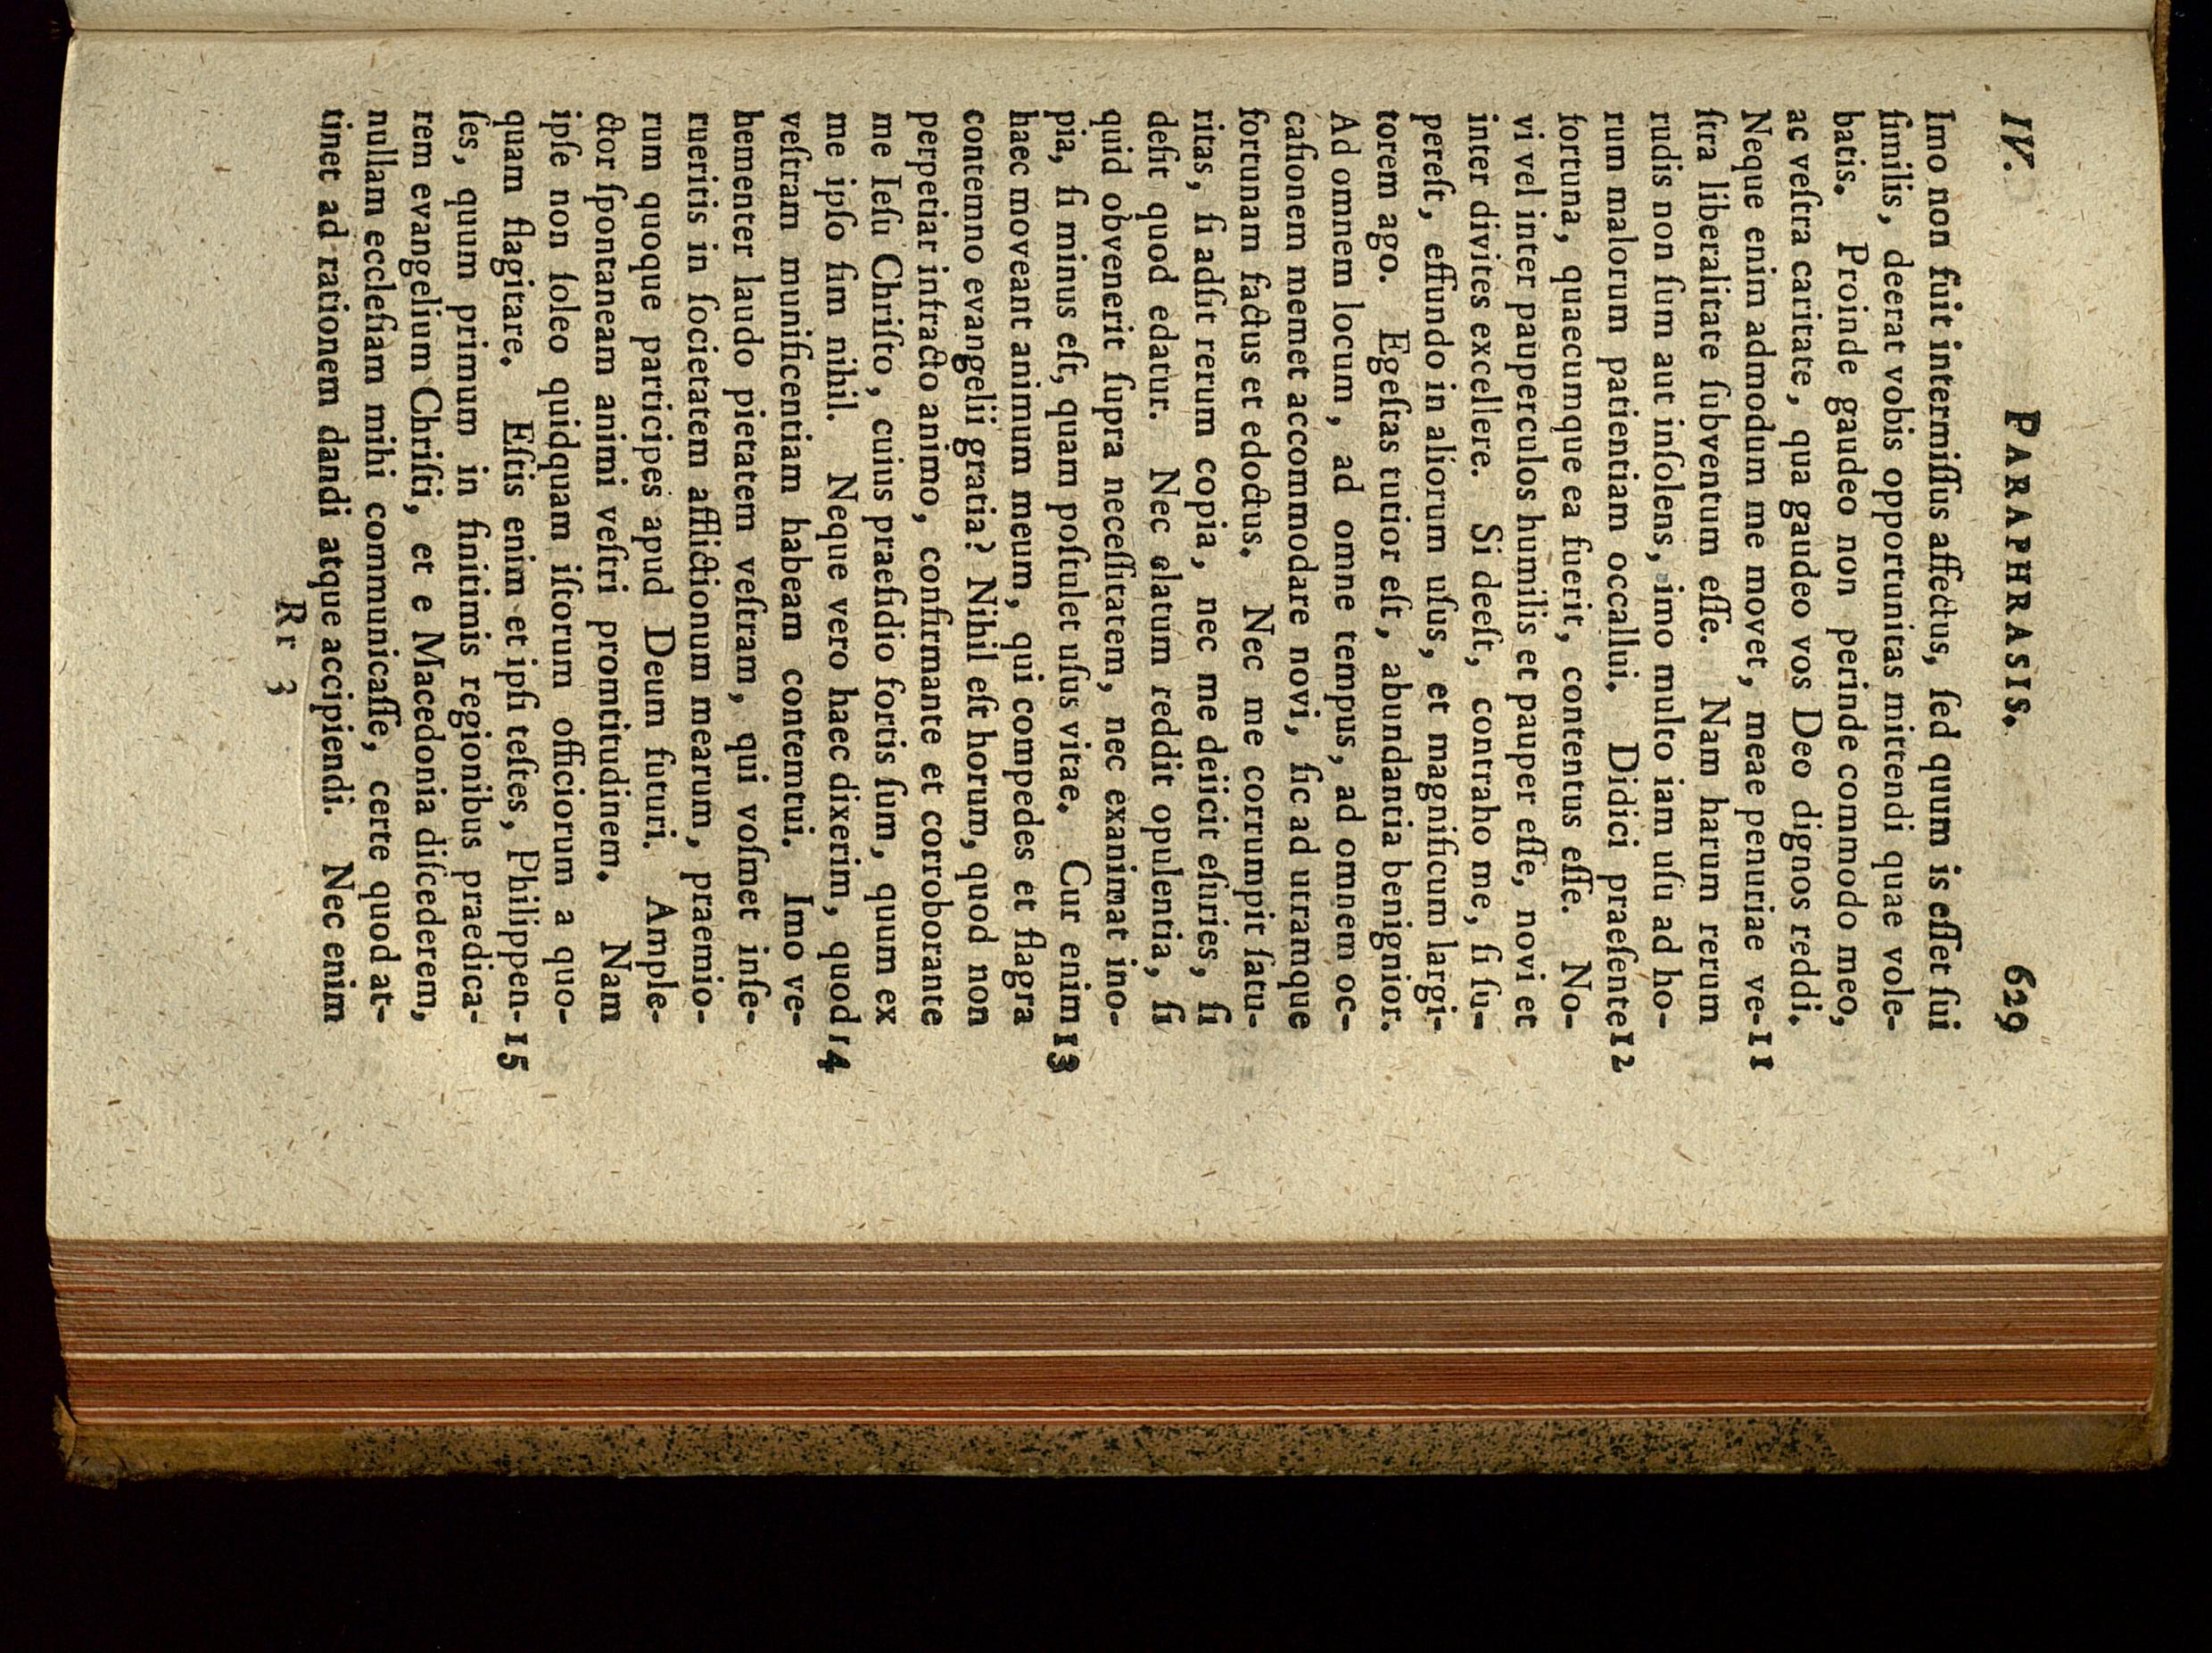 IV. PARAPHRASIS. 629
Imo non fuit intermiſſus affectus, ſed quum is eſſet ſui
ſimilis, deerat vobis opportunitas mittendi quae vole-
batis. Proinde gaudeo non perinde commodo meo,
ac veſtra caritate, qua gaudeo vos Deo dignos reddi.
Neque enim admodum me movet, meae penuriae ve- 11
ſtra liberalitate ſubventum eſſe. Nam harum rerum
rudis non ſum aut inſolens, imo multo iam uſu ad ho-
rum malorum patientiam occallui. Didici praeſente 12
fortuna, quaecumque ea fuerit, contentus eſſe. No-
vi vel inter pauperculos humilis et pauper eſſe, novi et
inter divites excellere. Si deeſt, contraho me, ſi ſu-
pereſt, effundo in aliorum uſus, et magnificum largi-
torem ago. Egeſtas tutior eſt, abundantia benignior.
Ad omnem locum, ad omne tempus, ad omnem oc-
caſionem memet accommodare novi, ſic ad utramque
fortunam factus et edoctus. Nec me corrumpit ſatu-
ritas, ſi adſit rerum copia, nec me deiicit eſuries, ſi
deſit quod edatur. Nec elatum reddit opulentia, ſi
quid obvenerit ſupra neceſſitatem, nec exanimat ino-
pia, ſi minus eſt, quam poſtulet uſus vitae. Cur enim 13
haec moveant animum meum, qui compedes et flagra
contemno evangelii gratia? Nihil eſt horum, quod non
perpetiar infracto animo, confirmante et corroborante
me Ieſu Chriſto, cuius praeſidio fortis ſum, quum ex
me ipſo ſim nihil. Neque vero haec dixerim, quod 14
veſtram munificentiam habeam contemtui. Imo ve-
hementer laudo pietatem veſtram, qui voſmet inſe-
rueritis in ſocietatem afflictionum mearum, praemio-
rum quoque participes apud Deum futuri. Ample-
ctor ſpontaneam animi veſtri promtitudinem. Nam
ipſe non ſoleo quidquam iſtorum officiorum a quo-
quam flagitare. Eſtis enim et ipſi teſtes, Philippen- 15
ſes, quum primum in finitimis regionibus praedica-
rem evangelium Chriſti, et e Macedonia diſcederem,
nullam eccleſiam mihi communicaſſe, certe quod at-
tinet ad rationem dandi atque accipiendi. Nec enim
Rr 3